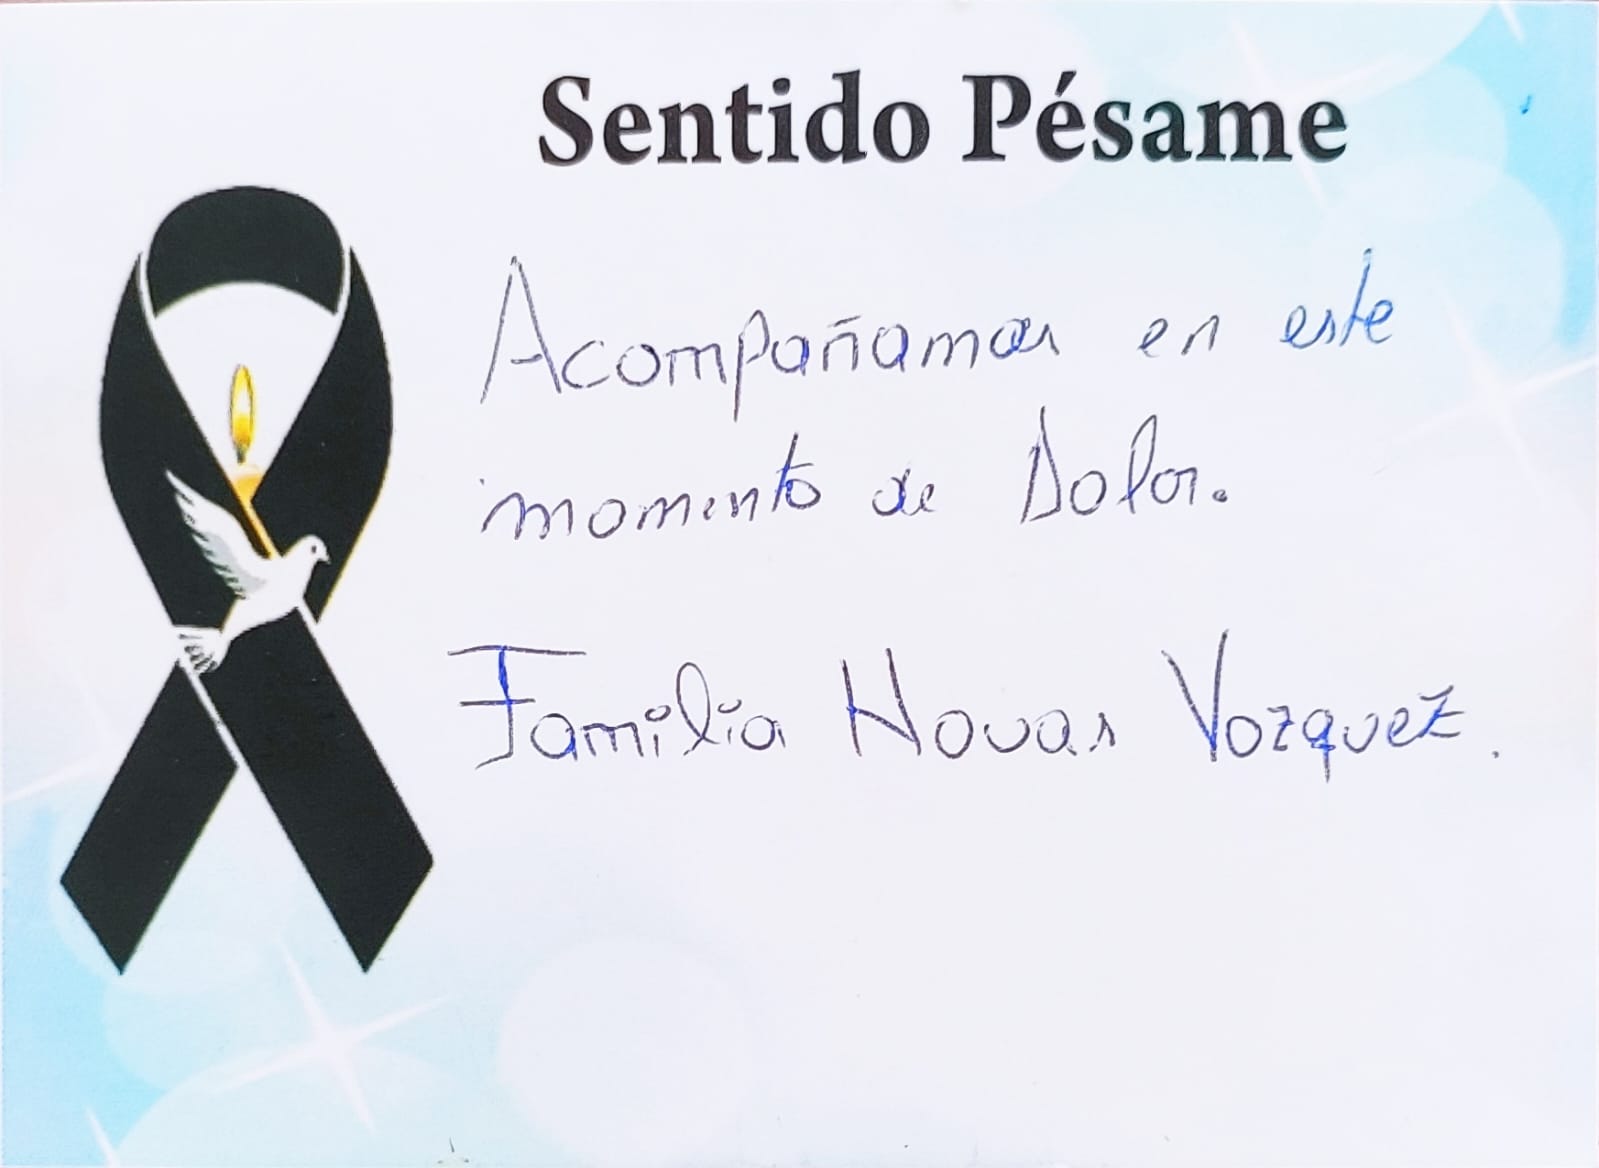 Sentido Pésame
Acompañamos en este
momento de Dolor.
Familia Novas Vozquez.